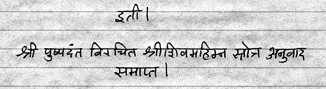 इती।
श्री पुष्पदंत विरचित श्रीशिवमहिम्न स्तोत्र अनुवाद
समाप्त।